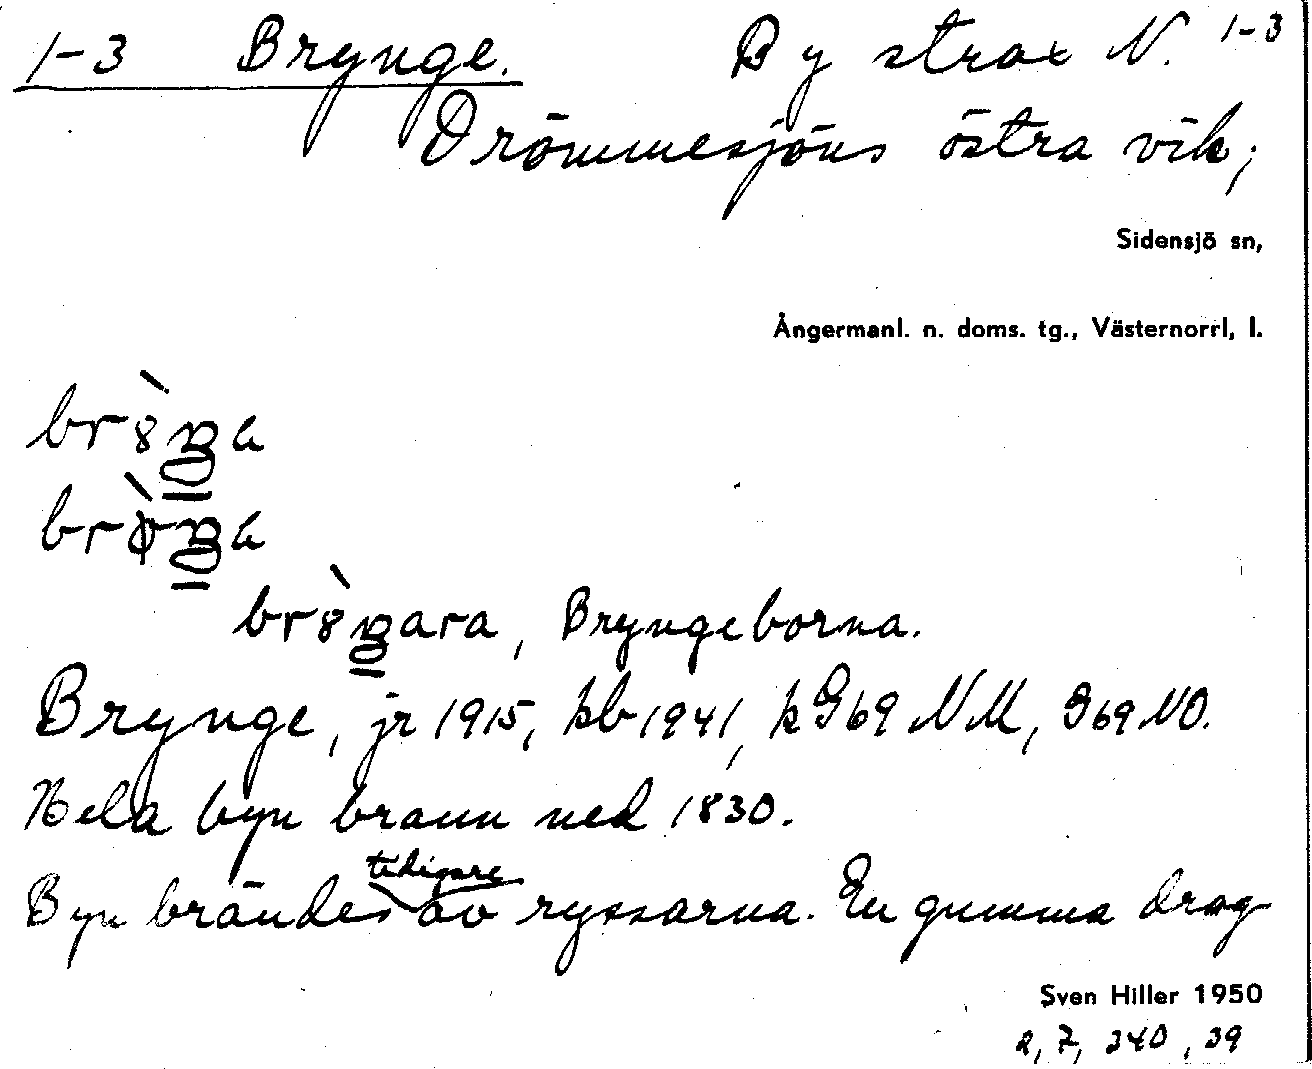 1-3 Brynge. By strax N. 1-3
Drömmesjöns östra vik;
Sidensjö sn,
Ångermanl. n. doms. tg., Västernorrl, l.
Bryngeborna.
Brynge, jr 1915, kb 1941, k G69 NM, G69 NO.
Hela byn brann ned 1830.
tidigare
Byn brändes av ryssarna. En gumma drog
Sven Hiller 1950
2, 7, 240, 39